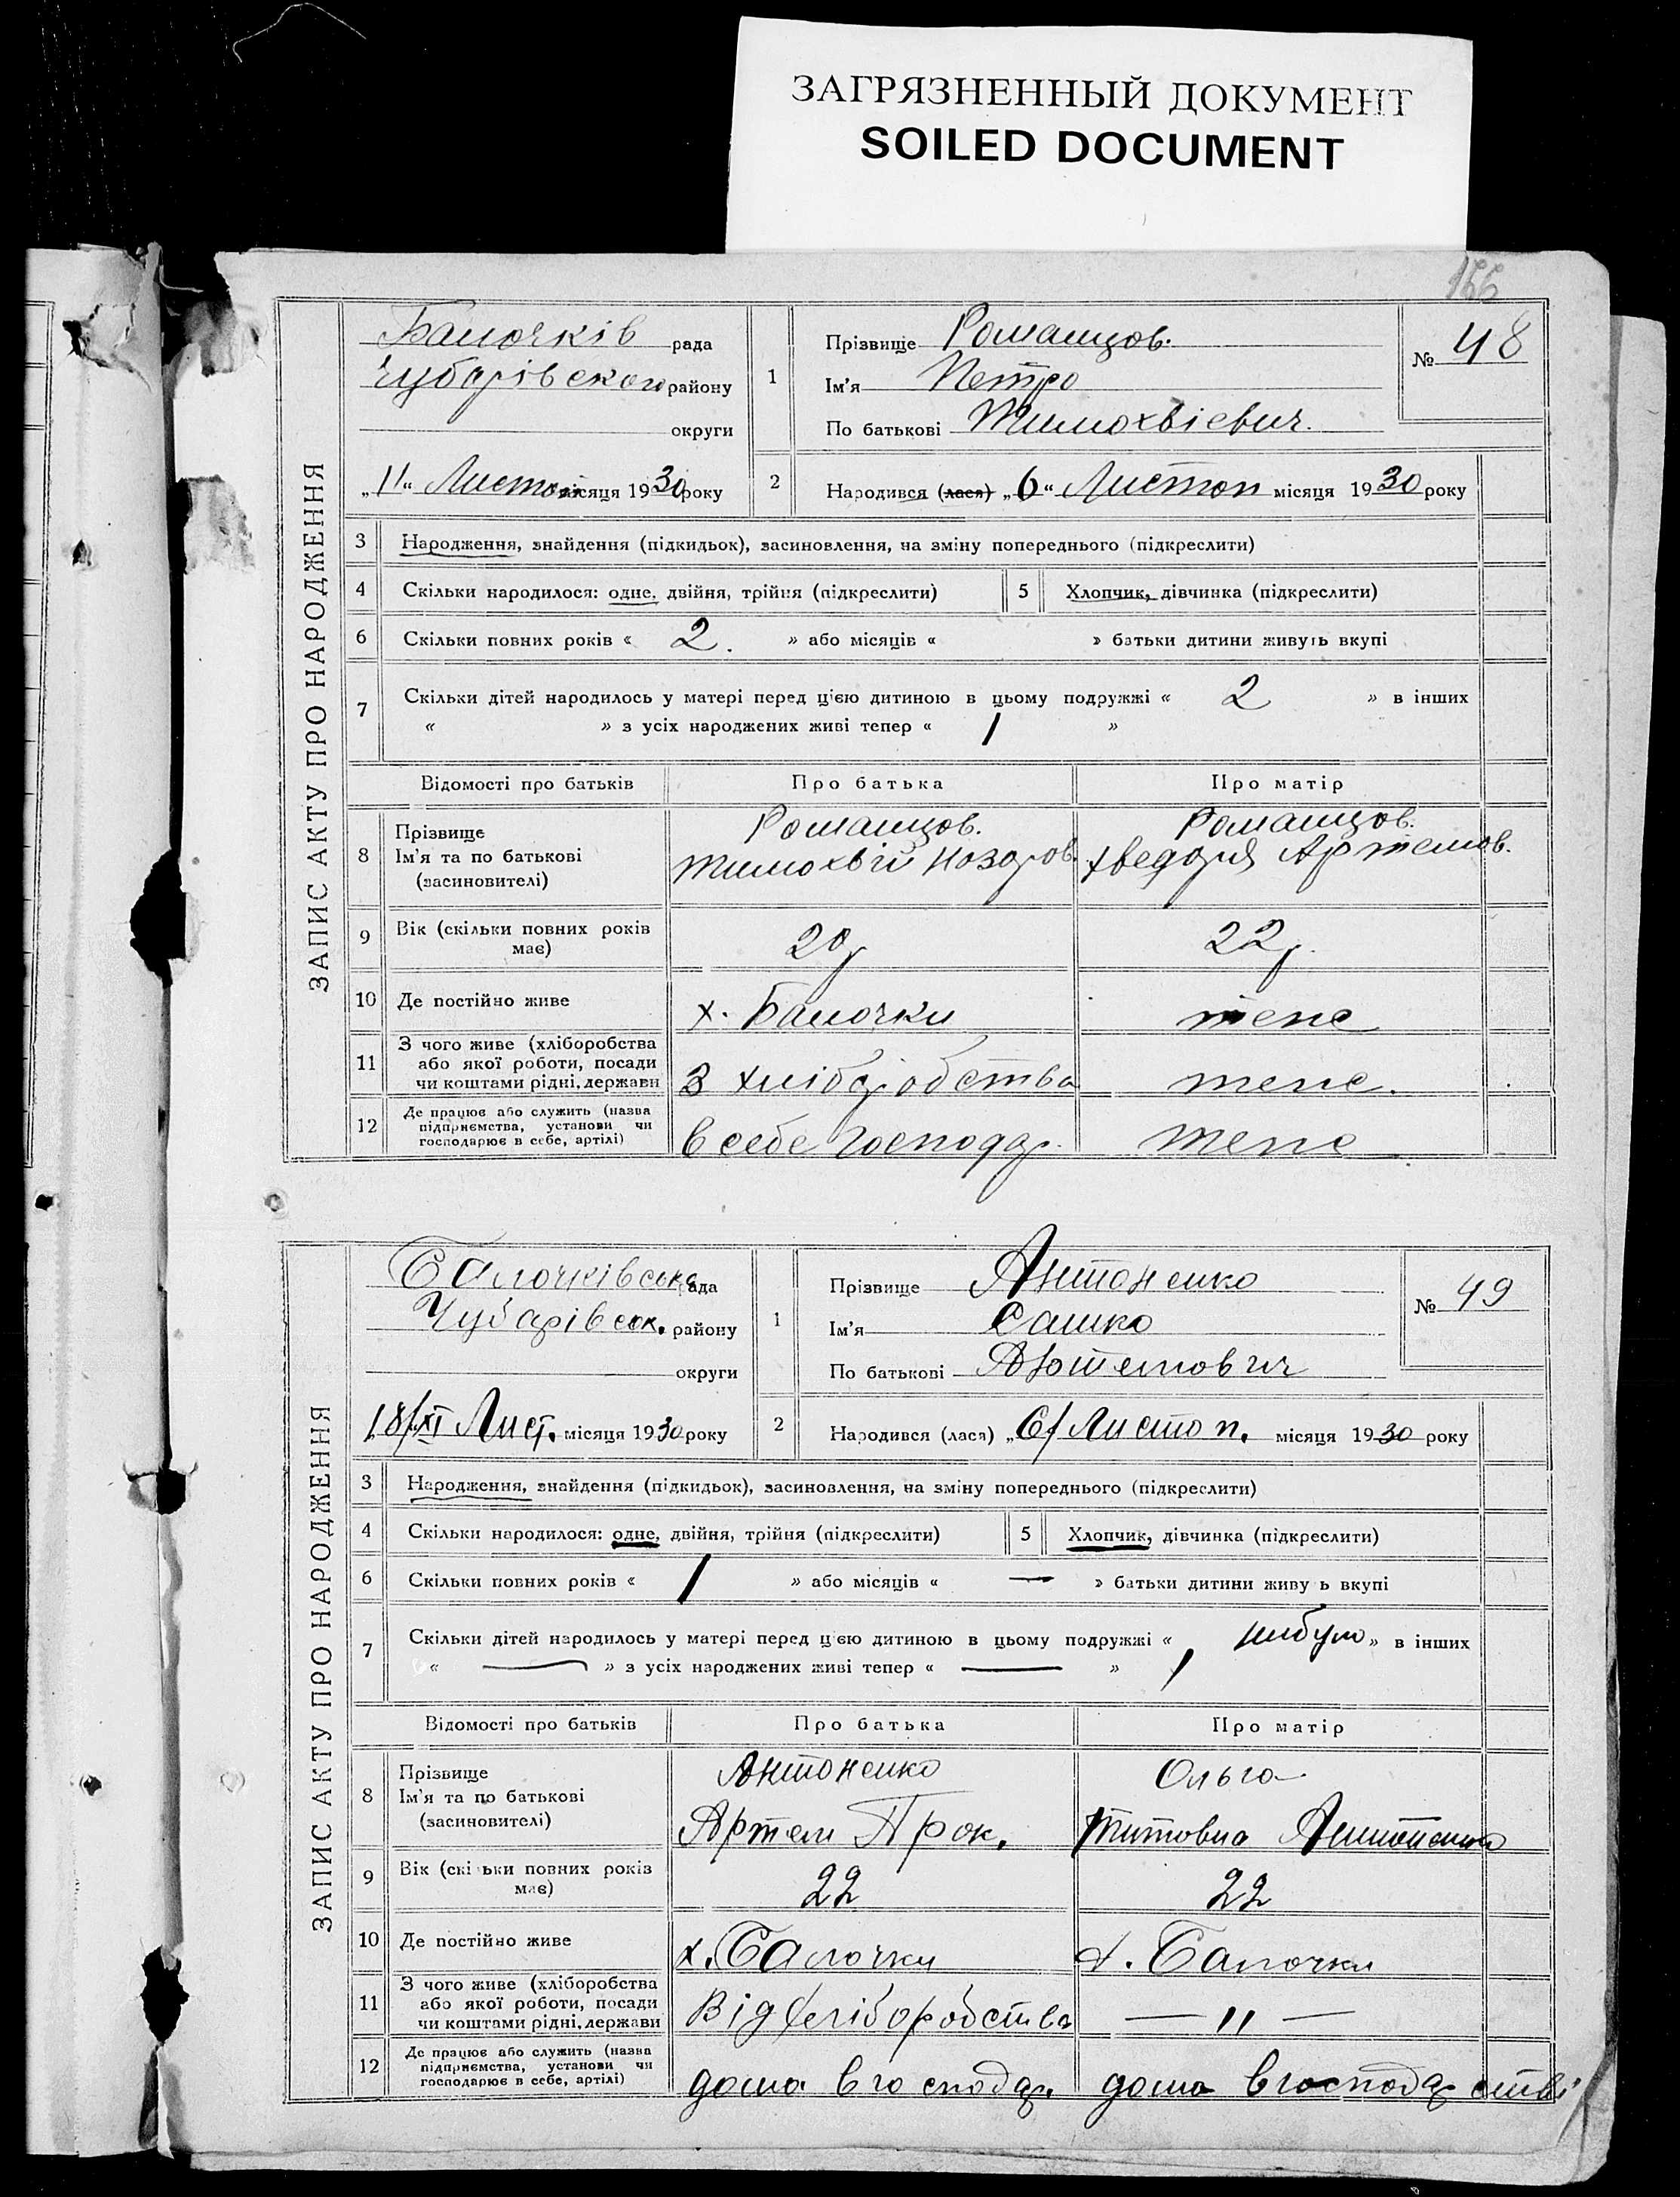 ЗАГРЯЗНЕННЫЙ ДОКУМЕНТ
SOILED DOCUMENT
166
ЗАПИС АКТУ ПРО НАРОДЖЕННЯ
Балочків рада
Чубарівског району
округи
„11“ Листоп місяця 1930 року
1 Прізвище Романцов.
Ім'я Петро
По батькові Тимохвієвич.
№ 48
2 Народився (лася) „6“ Листоп місяця 1930 року
3 Народження, знайдення (підкидьок), засиновлення, на зміну попереднього (підкреслити)
4 Скільки народилося: одне, двійня, трійня (підкреслити) 5 Хлопчик, дівчинка (підкреслити)
6 Скільки повних років « 2. » або місяців « » батьки дитини живуть вкупі
7 Скільки дітей народилось у матері перед цією дитиною в цьому подружжі « 2 » в інших
« » з усіх народжених живі тепер « 1 »
Відомості про батьків Про батька Про матір
8 Прізвище
Ім'я та по батькові
(засиновителі)
Романцов.
Тимохвій Назаров.
Романцов.
Хведоря Артемов.
9 Вік (скільки повних років
має)
20р
22р.
10 Де постійно живе х. Балочки тепе
11 З чого живе (хліборобства
або якої роботи, посади
чи коштами рідні, держави
З хліборобства тепе.
12 Де працює або служить (назва
підприємства, установи чи
господарює в себе, артілі)
в себе господар. тепе
ЗАПИС АКТУ ПРО НАРОДЖЕННЯ
Балочківська рада
Чубарівськ. району
округи
18/XI Лист. місяця 1930 року
1 Прізвище Антоненко
Ім'я Сашко
По батькові Артемович
№ 49
2 Народився (лася) „6/ Листоп. місяця 1930 року
3 Народження, знайдення (підкидьок), засиновлення, на зміну попереднього (підкреслити)
4 Скільки народилося: одне, двійня, трійня (підкреслити) 5 Хлопчик, дівчинка (підкреслити)
6 Скільки повних років « 1 » або місяців « — » батьки дитини живу ь вкупі
7 Скільки дітей народилось у матері перед цією дитиною в цьому подружжі « нибуло » в інших
« — » з усіх народжених живі тепер « — »
Відомості про батьків Про батька Про матір
8 Прізвище
Ім'я та по батькові
(засиновителі)
Антоненко
Артем Прок.
Ольга
Титовна Антоненко
9 Вік (скі ьки повних років
має)
22
22
10 Де постійно живе х. Балочки х. Балочки
11 З чого живе (хліборобства
або якої роботи, посади
чи коштами рідні, держави
Від хліборобства — " —
12 Де працює або служить (назва
підприємства, установи чи
господарює в себе, артілі)
дома в господар. дома в господарстві